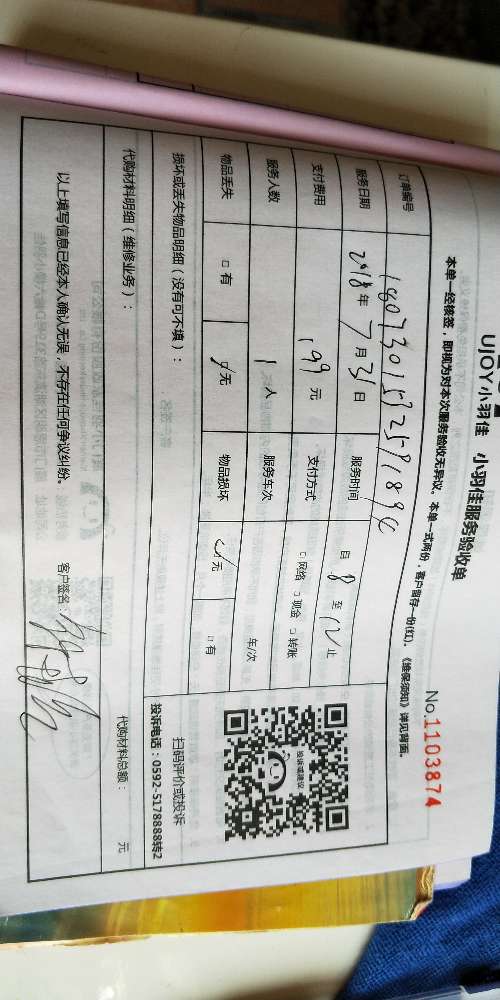 UJOY小羽佳 小羽佳服务验收单
No.1103874
本单一经核签，即视为对本次服务验收无异议。本单一式两份，客户留存一份(红)。《维保须知》详见背面。
订单编号
服务日期 2018年7月31日 服务时间 自8至12止
支付费用 199元 支付方式 □网络 □现金 □转账
服务人数 1人 服务车次 车/次
物品丢失 □有 ☑无 物品损坏 ☑无 □有
损坏或丢失物品明细（没有可不填）：
投诉或建议
扫码评价或投诉
投诉电话：0592-5178888转2
代购材料明细（维修业务）： 代购材料总额： 元
以上填写信息已经本人确认无误，不存在任何争议纠纷。 客户签名：